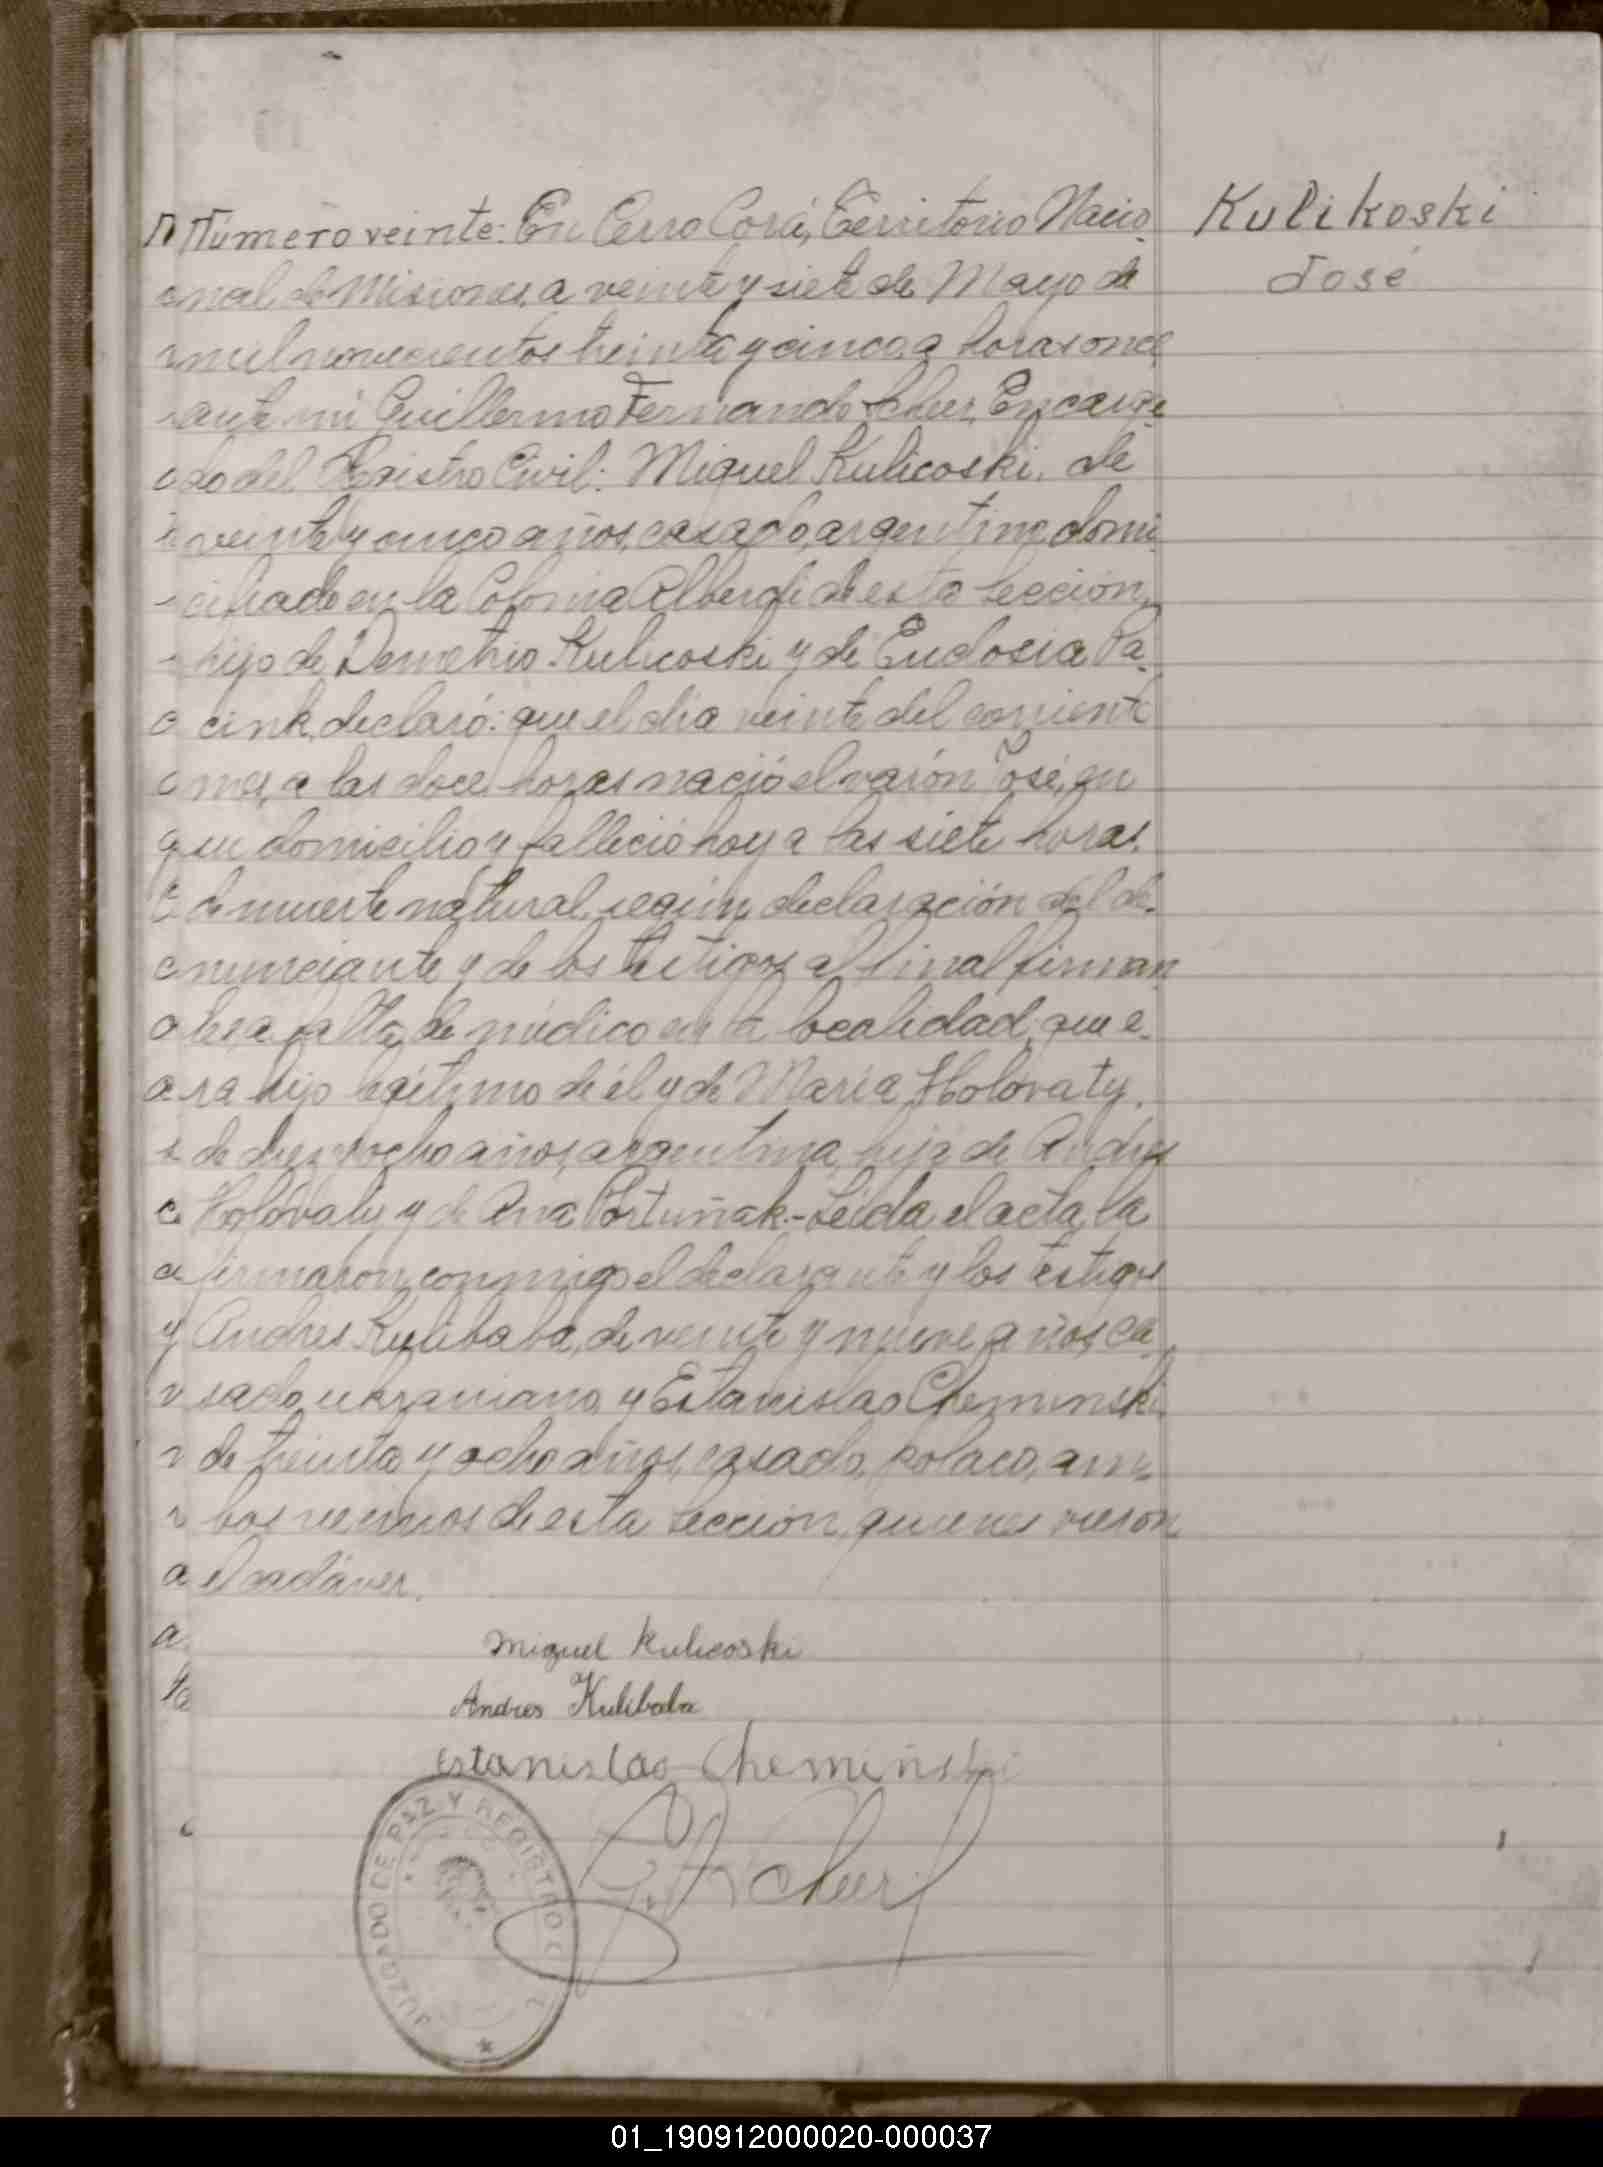 Número veinte: En Cerro Corá, Territorio Nacio-
nal de Misiones, a veinte y siete de Mayo de
mil novecientos treinta y cinco, a horas once,
ante mi Guillermo Fernando Scheer, Encarga-
do del Registro Civil: Miguel Kulicoski, de
veinte y cinco años, casado, argentino domi-
ciliado en la Colonia Alberdi de esta Sección,
hijo de Demetrio Kulicoski y de Eudosia Pa-
cink, declaró: que el día veinte del corriente
mes, a las doce horas nació el varón José, en
su domicilio y falleció hoy a las siete horas,
de muerte natural, según declaración del de-
nunciante y de los testigos al final firman
tes, a falta de médico en la localidad, que e-
ra hijo legítimo de él y de María Holóvaty,
de diez y ocho años, argentina, hija de Andrés
Holóvaty y de Ana Portuñak.- Leída el acta, la
firmaron conmigo el declarante y los testigos
Andres Kulibaba, de veinte y nueve años, ca-
sado, ukraniano, y Estanislao Cheminski,
de treinta y ocho años, casado, polaco, am-
bos vecinos de esta Sección, quienes vieron
el cadáver.
Miguel Kulicoski
Andres Kulibaba
Estanislao Chemiñski
G. F. Scheer
JUZGADO DE PAZ Y REGISTRO C
Kulikoski
José
01_190912000020-000037